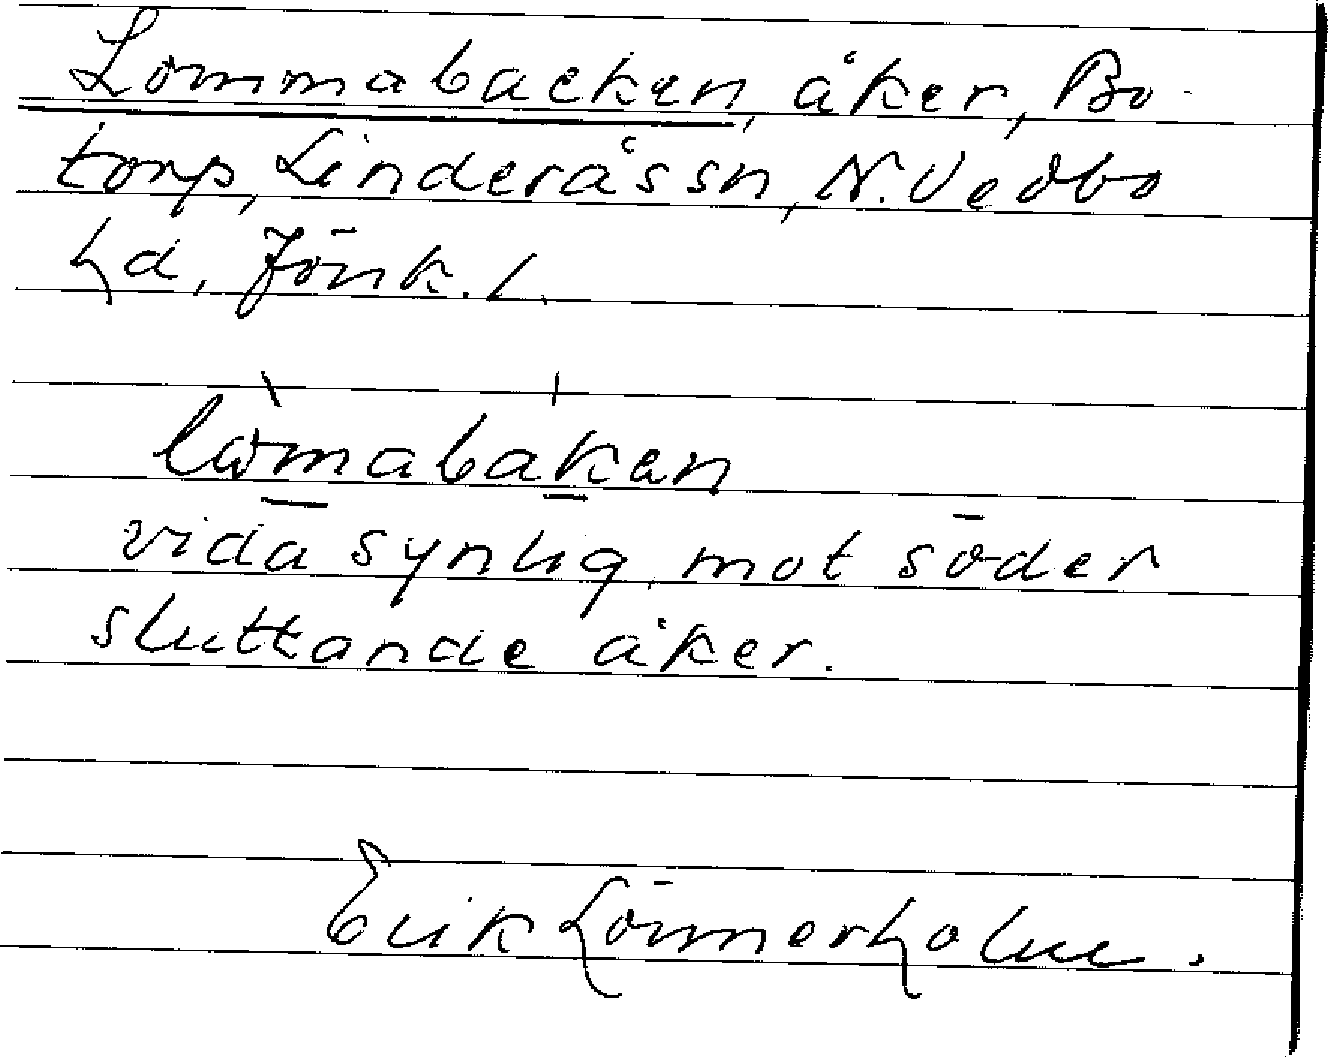 Lommabacken, åker, Bo-
torp, Linderås sn, N. Vedbo
hd, Jönk. l.
lòmabakan
vida synlig, mot söder
sluttande åker.
Erik Lönnerholm.